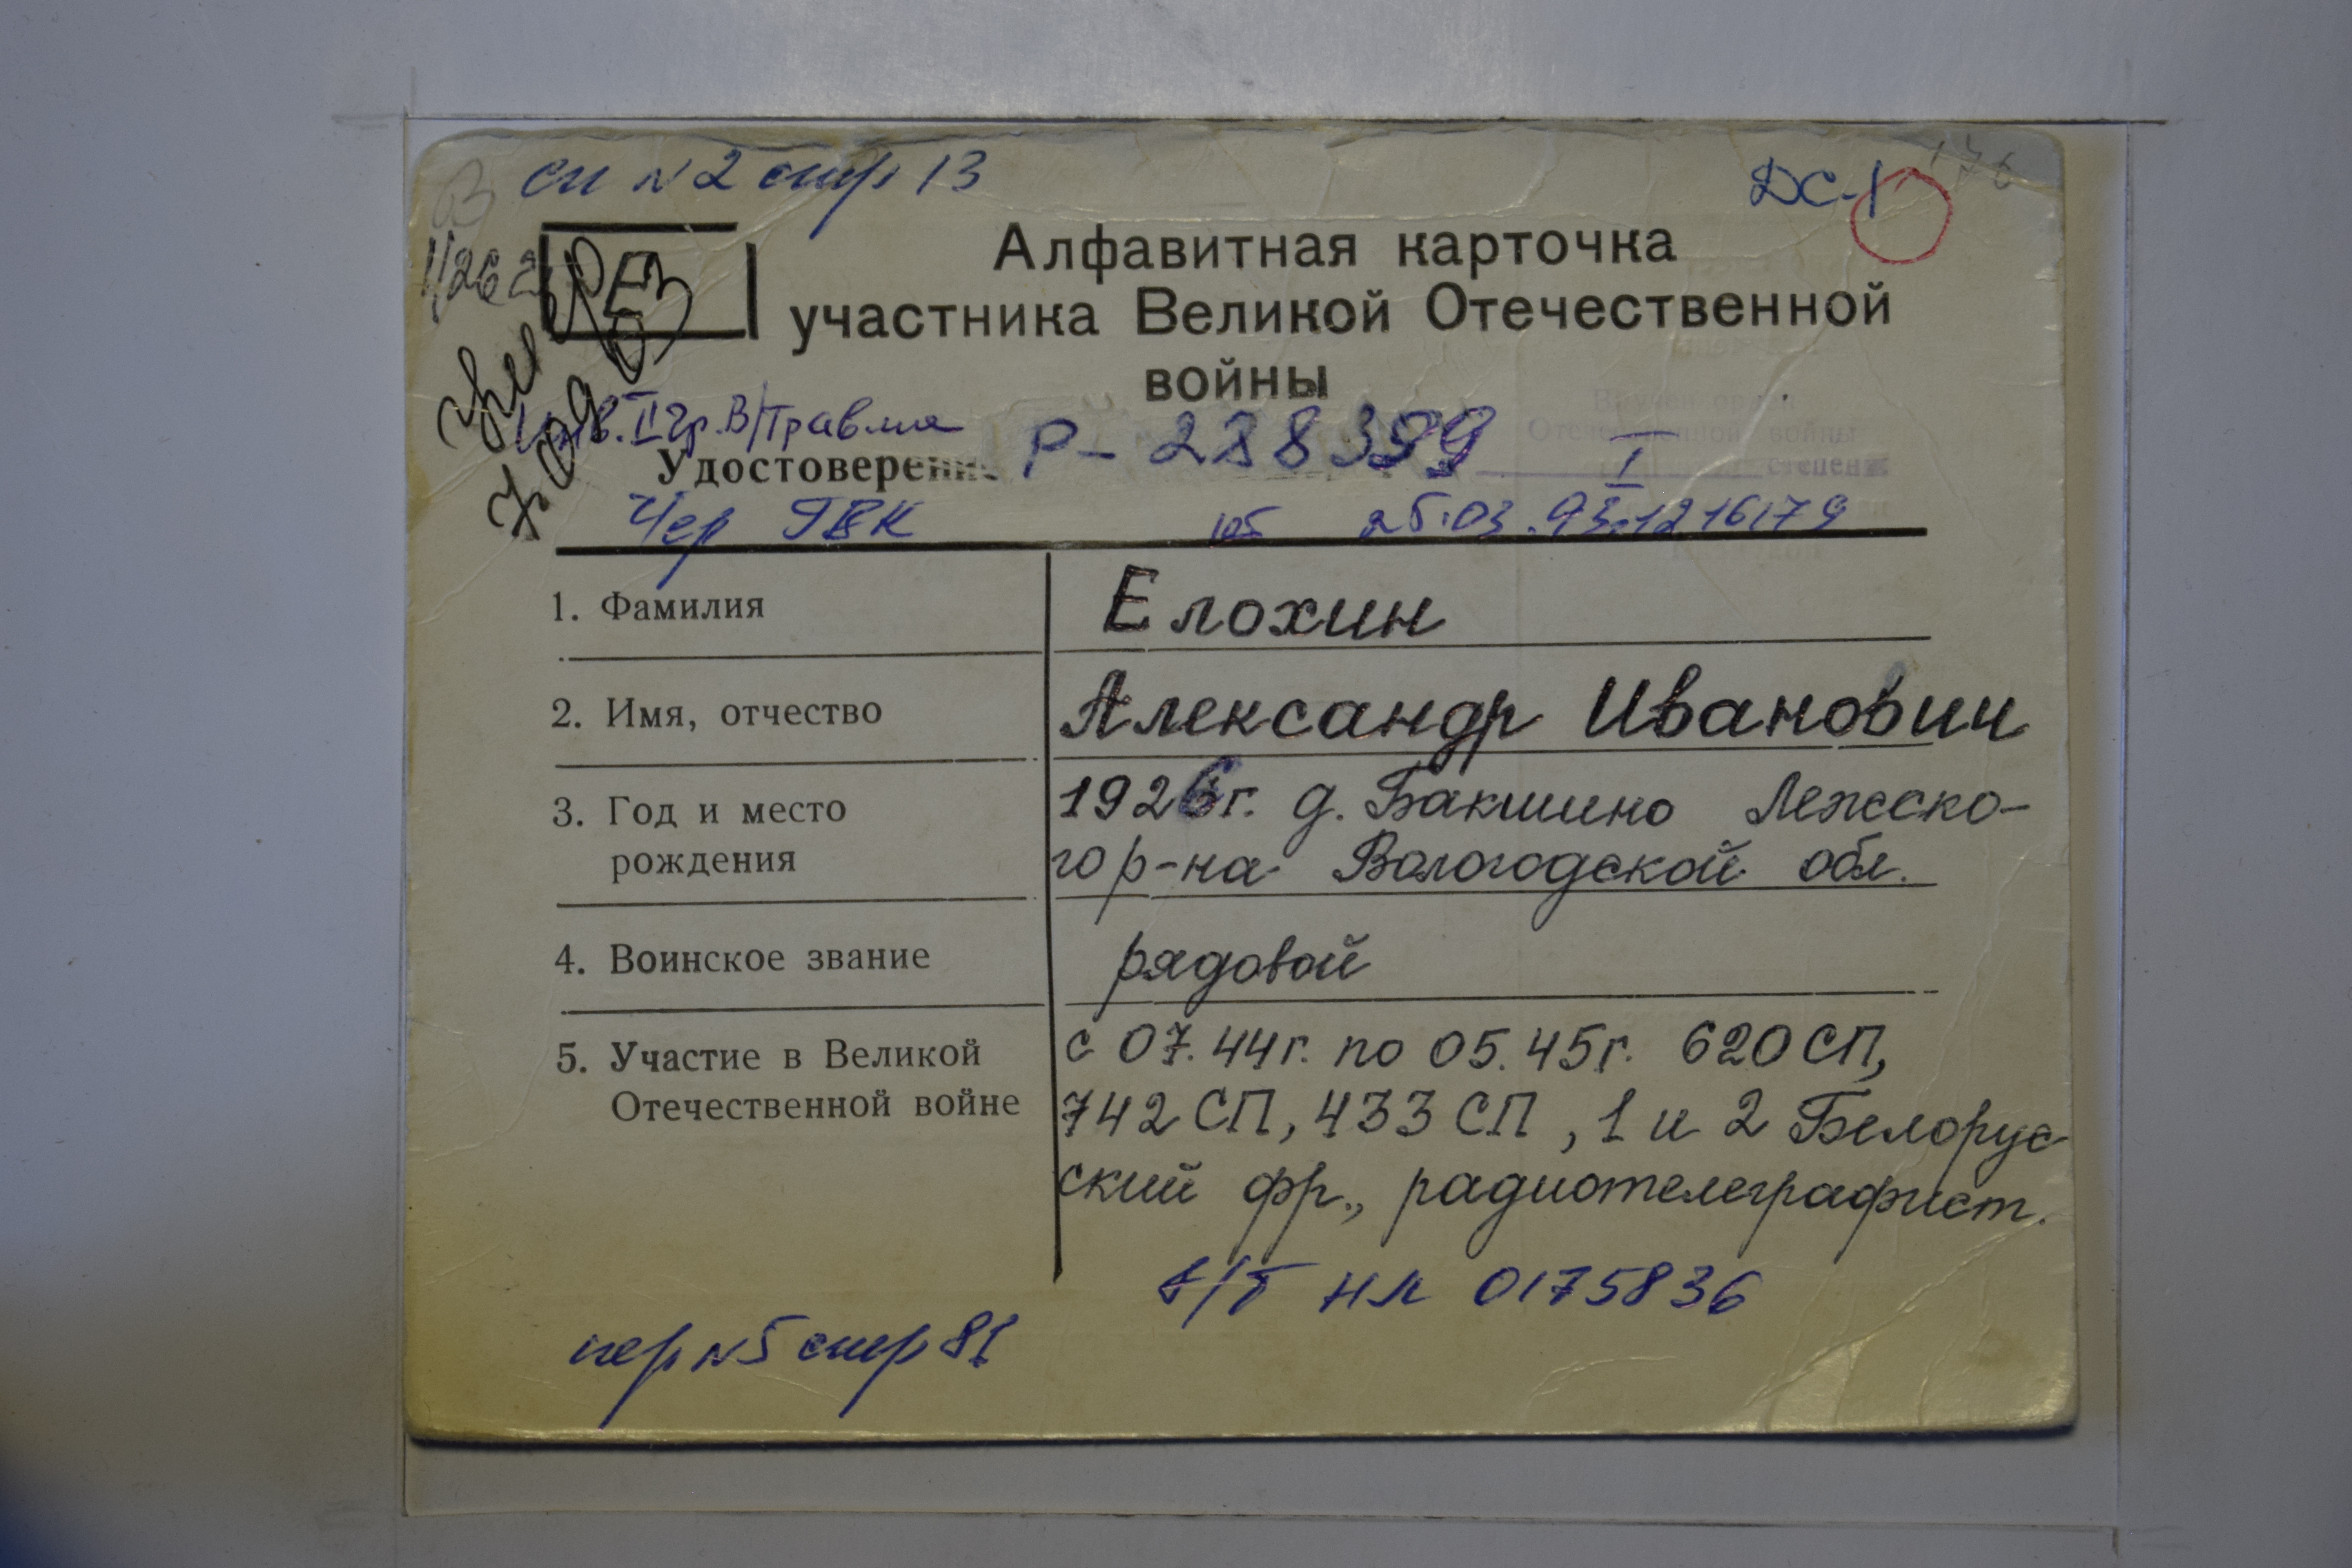 сп N2 стр 13
ДС-1
1/262
Е
Алфавитная карточка
участника Великой Отечественной
войны
инв. II гр. В/Травма
Удостоверени Р-288399
I
Чер ГВК юб 25.03.93. 1216179
1. Фамилия Елохин
2. Имя, отчество Александр Иванович
3. Год и место 1926г. д. Бакшино Лежско-
рождения го р-на Вологодской обл.
4. Воинское звание рядовой
5. Участие в Великой с 07.44г. по 05.45г. 620СП,
Отечественной войне 742 СП, 433 СП, 1 и 2 Белорус
ский фр., радиотелеграфист.
НЛ 0175836
пер N5 стр 81